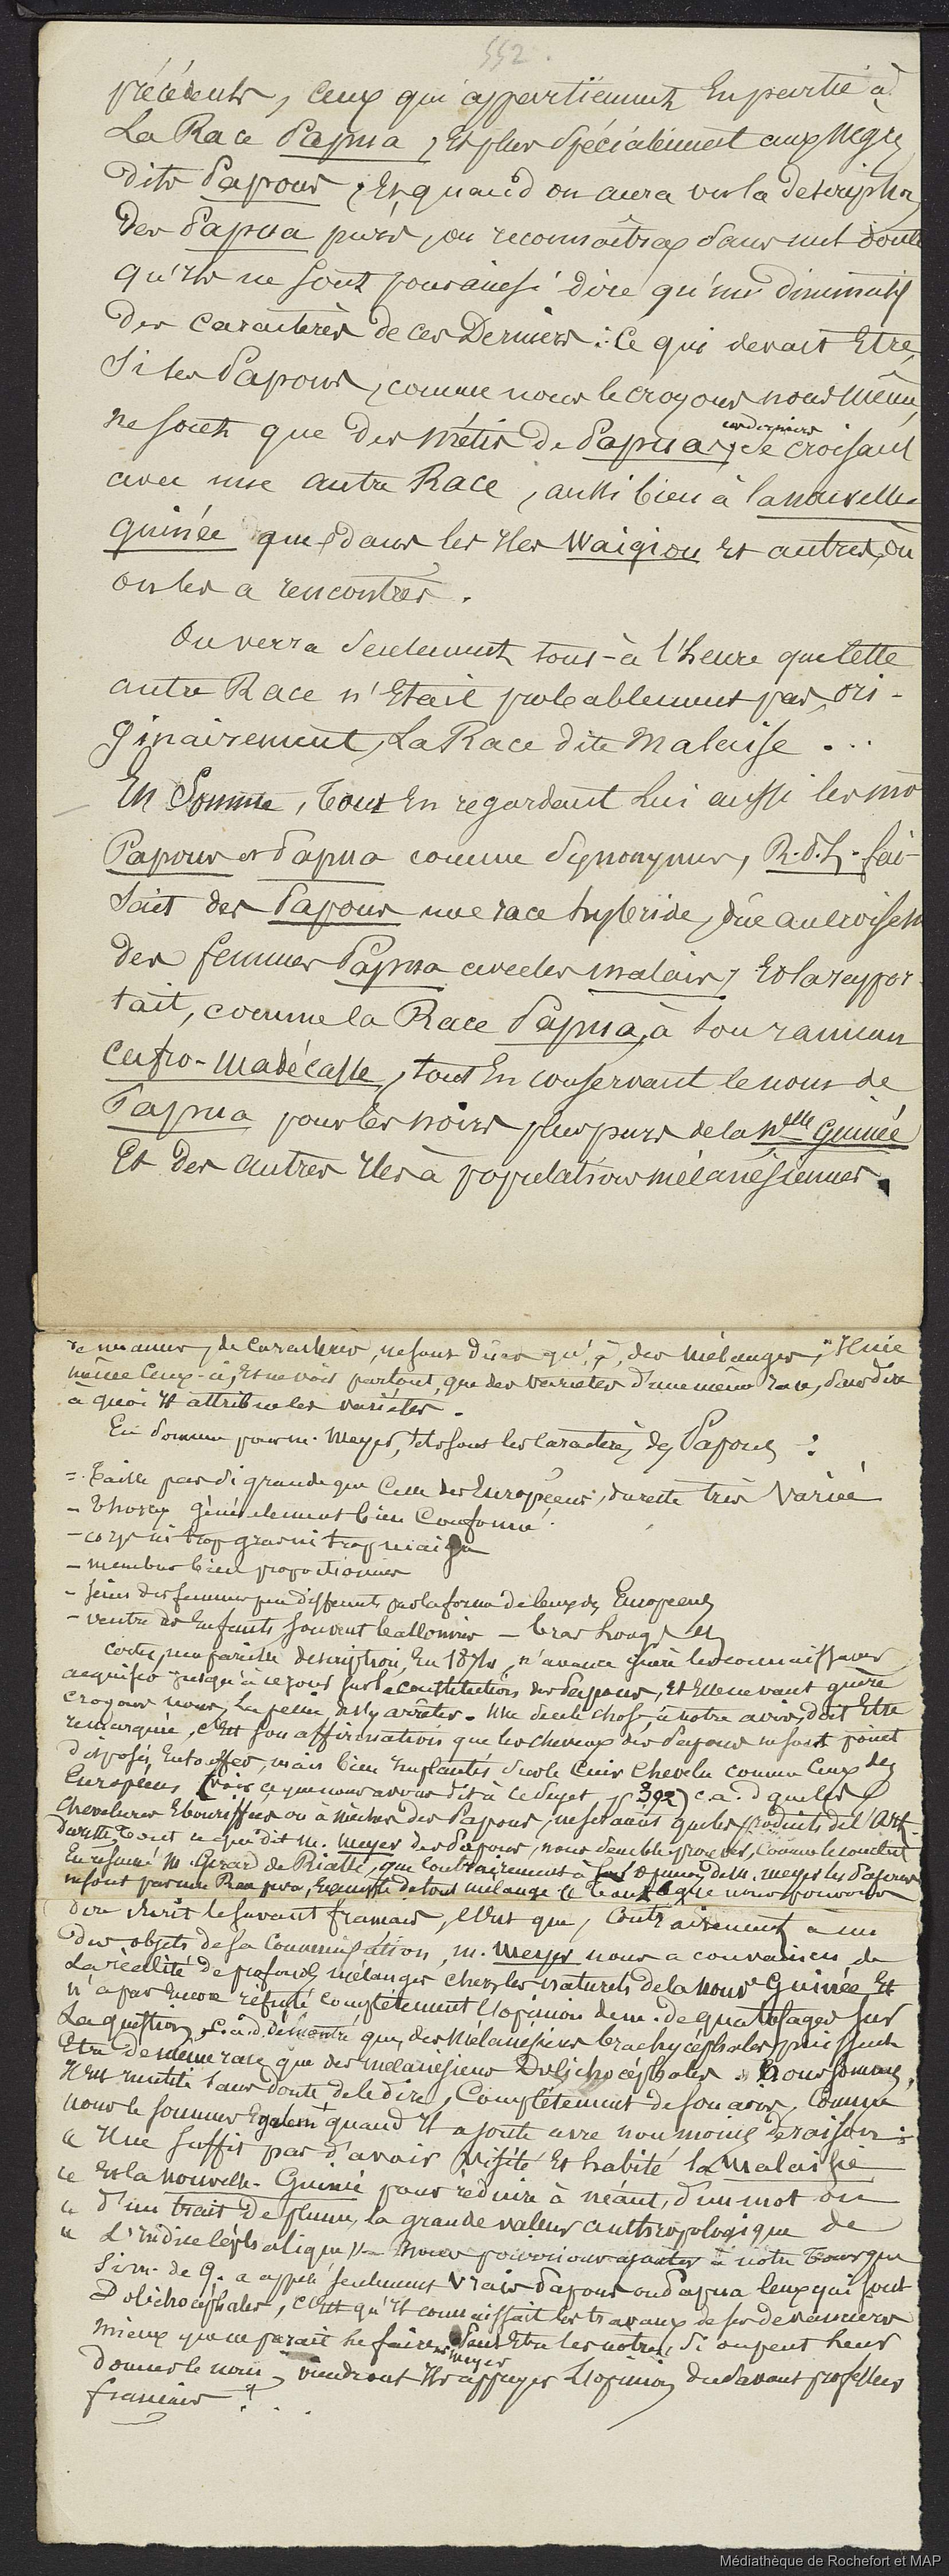 552.
précédents, ceux qui appartiennent En partie à
La Race Papua, Et plus Spécialement aux Nègres
dits Papous ; Et, quand on aura vu la description
des Papua purs, on reconnaîtra sans nul doute
qu'ils ne sont pour ainsi dire qu'un diminutif
des caractères de ces Derniers : Ce qui devait Etre,
Si les Papous, comme nous le croyons nous même,
ne sont que des Métis de Papuas, ces derniers se croisant
avec une autre Race, aussi bien à la nouvelle-
guinée que dans les Iles Waigiou Et autres, où
on les a rencontrés.
On verra Seulement tout-à l'heure que Cette
autre Race n'Etait probablement pas, ori-
ginairement, La Race dite Malaise ...
En Somme, Tout En regardant Lui aussi les mo
Papous et Papua comme Synonymes, R.P.L. fai-
sait des Papous une race hybride, dûe au croisem
des femmes Papua avec les malais, Et la rappor-
tait, comme la Race Papua, à son rameau
Cafro-Madécasse, tout En conservant le nom de
Papua pour les noirs plus purs de la Nlle Guinée
Et des autres Iles à populations mélanésiennes.
de nuances, de Caractères, ne sont dûes qu'à des Mélanges ; Il nie
même Ceux-ci, Et ne voit partout, que des Variétés d'une même race, Sans dire
à quoi Il attribue les variétés.
En Somme pour M. Meyer, tels sont les Caractères des Papous :
= Taille pas Si grande que Celle des Européens, du reste très Variée
- Thorax généralement bien Conformé.
- corps ni trop gras ni trop maigre
- membres bien proportionnés
- Seins des femmes peu différents par la forme de Ceux des Européens
- ventre des Enfants Souvent ballonnés — bras longs
Certes, une pareille description, En 1874, n'avance guère les connaissances
acquises jusqu'à ce jour sur la constitution des Papous, Et Elle ne vaut guère
croyons nous, La peine de s'y arrêter. Une Seule chose, à notre avis, doit Etre
remarquée, c'Est son affirmation que les cheveux des Papous ne sont point
disposés En touffes, mais bien Implantés sur le Cuir Chevelu comme Ceux des
Européens (voir ce que nous avons dit à ce Sujet, p. 392) c.a.d que les
Chevelures Ebouriffées ou à mèches des Papous, ne seraient que les produits de l'Art.
Du reste, Tout ce qu'a dit M. Meyer des Papous, nous semble prouver, Comme le conclut
En résumé M. Girard de Rialle, que Contrairement à l'opinion de M. Meyer les Papous
ne sont pas une Race pure, Exempte de tout mélange « Ce que nous pouvons
dire Ecrit le Savant français, c'Est que, Contrairement à un
des objets de sa Communication, M. Meyer nous a convaincu de
La réalité de profonds mélanges chez les naturels de la Nouv. Guinée, Et
n'a pas Encore réfuté complètement l'opinion de M. de Quatrefages sur
La question, c.a.d. démontré que des Mélanésiens brachycéphales puissent
Etre de même race que des mélanésiens Dolichocéphales » Nous Sommes,
Il Est inutile Sans doute de le dire, Complètement de son avis, Comme
nous le Sommes Egalem quand Il ajoute avec non moins de raison :
« Il ne suffit pas d'avoir visité Et habité la Malaisie
« Et la Nouvelle-Guinée pour réduire à néant, d'un mot ou
« d'un trait De plume, la grande valeur anthropologique de
« L'indice céphalique » — Nous pouvons ajouter à notre Tour que
Si M. de Q. a appelé Seulement vrais Papous ou Papua Ceux qui sont
Dolichocéphales, C'Est qu'il connaissait les travaux de ses devanciers
Mieux que ne paraît le faire M. Meyer Sans Etre les notres, Si on peut leur
Donner le nom, viendront Ils appuyer l'opinion du Savant professeur
français ? ...
Médiathèque de Rochefort et MAP